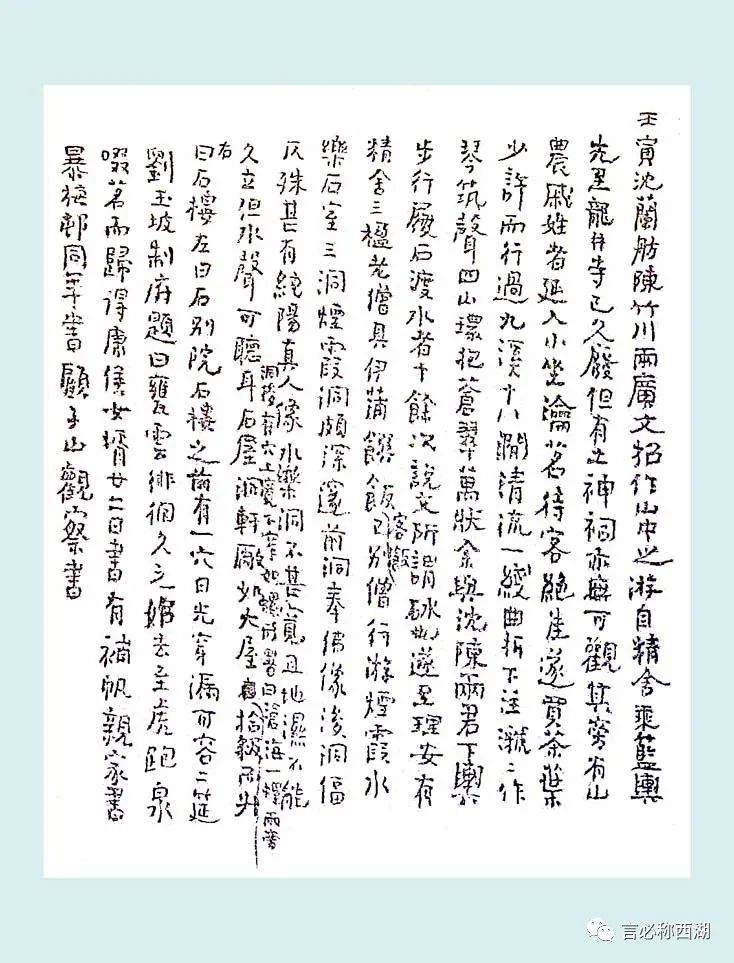 壬寅沈蘭舫陳竹川兩廣文招作山中之游自精舍乘藍輿
先至龍井寺已久廢但有土神祠亦無可觀其旁有山
農戚姓者延入小坐瀹茗待客絕佳遂買茶葉
少許而行過九溪十八澗清流一綫曲折下注㶁〻作
琴筑聲四山環抱蒼翠萬狀余與沈陳兩君下輿
步行履石渡水者十餘次說文所謂砅也遂至理安有
精舍三楹老僧具伊蒲饌飯
客飯
已別僧行游煙霞水
樂石室三洞煙霞洞頗深邃前洞奉佛像後洞偪
仄殊甚有純陽真人像水樂洞不甚寬且地濕不能
洞後有穴上寬下窄如螺形署曰滄海一螺兩旁
久立但水聲可聽耳石屋洞軒厰如大屋拾級而升
右
曰石樓左曰石別院石樓之前有一穴日光穿漏可容二筵
劉玉坡制府題曰甕雲徘徊久之始去至虎跑泉
啜茗而歸得康侯女壻廿二日書有補帆親家書
暴梅邨同年書顧子山觀察書
言必称西湖